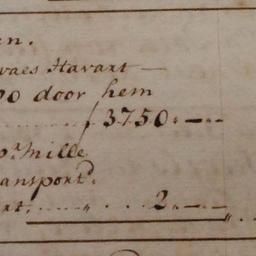 en.
vaes Havart —
00 door hem
ƒ 3750 „ — „
pr. mille
ansportd.
rt. . . . „ . . 2 „ — „